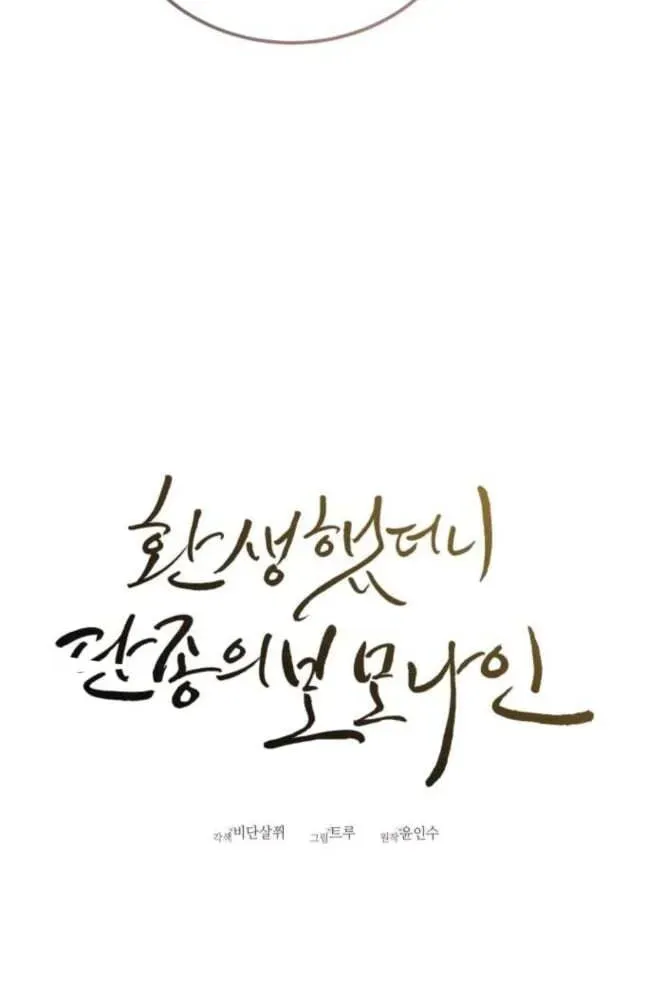 환생했더니
단종의 보모나인
각색 비단살쾡 그림 트루 원작 윤인수